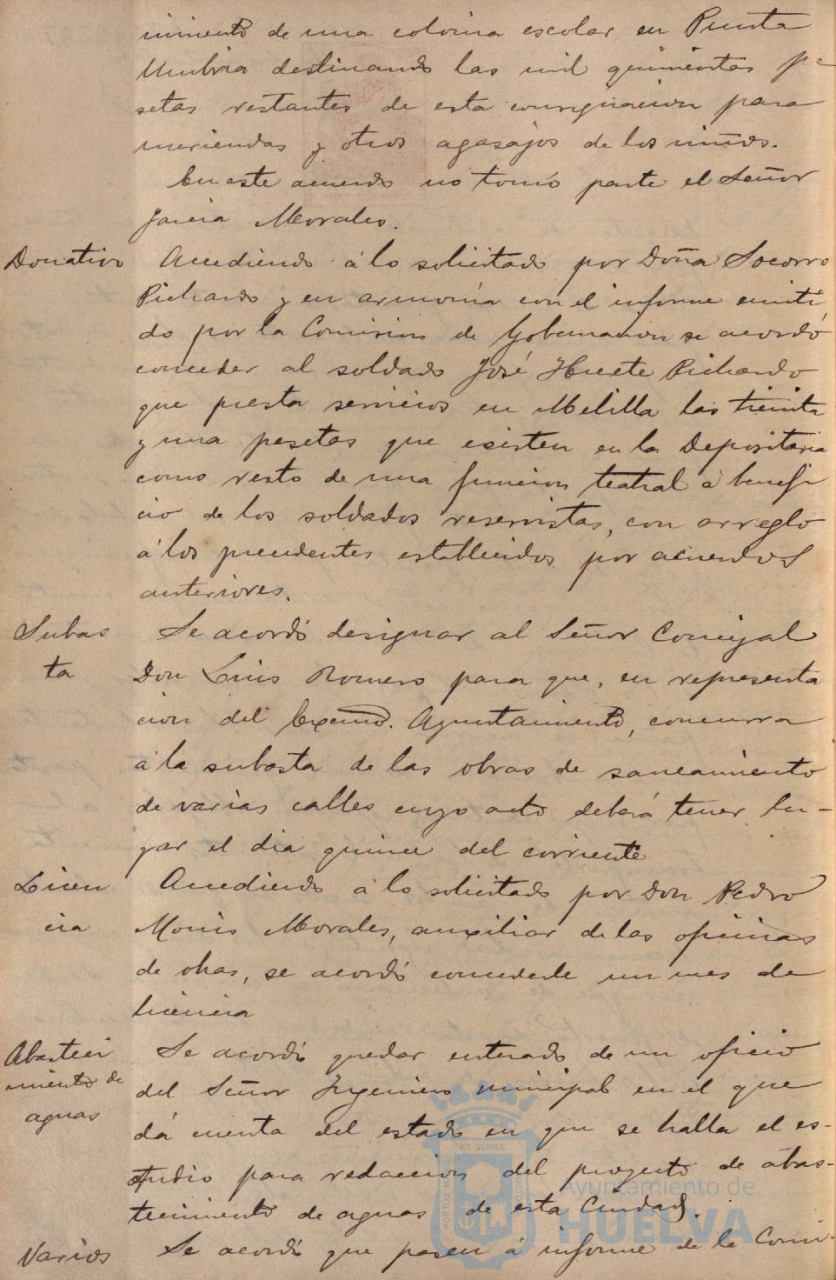 nimiento de una colonia escolar en Punta
Umbria destinando las mil quinientas pe
setas restantes de esta consignacion para
meriendas y otros agasajos de los niños.
En este acuerdo no tomó parte el Señor
Garcia Morales.
Donativo Accediendo á lo solicitado por Doña Socorro
Pichardo y en armonía con el informe emiti
do por la Comision de Gobernacion se acordó
conceder al soldado José Huete Pichardo
que presta servicios en Melilla las treinta
y una pesetas que existen en la Depositaria
como resto de una funcion teatral á benefi
cio de los soldados reservistas, con arreglo
á los precedentes establecidos por acuerdos
anteriores.
Subas Se acordó designar al Señor Concejal
ta Don Luis Romero para que, en representa
cion del Excmo. Ayuntamiento, concurra
á la subasta de las obras de saneamiento
de varias calles cuyo acto deberá tener lu-
gar el dia quince del corriente
Licen Accediendo á lo solicitado por Don Pedro
cia Monis Morales, auxiliar de las oficinas
de obras, se acordó concederle un mes de
licencia
Abasteci Se acordó quedar enterado de un oficio
miento de del Señor Ingeniero municipal en el que
aguas dá cuenta del estado en que se halla el es-
tudio para redaccion del proyecto de abas-
tecimiento de aguas de esta Ciudad.
Varios Se acordó que pasen á informe de la Comi-
Ayuntamiento de
HUELVA